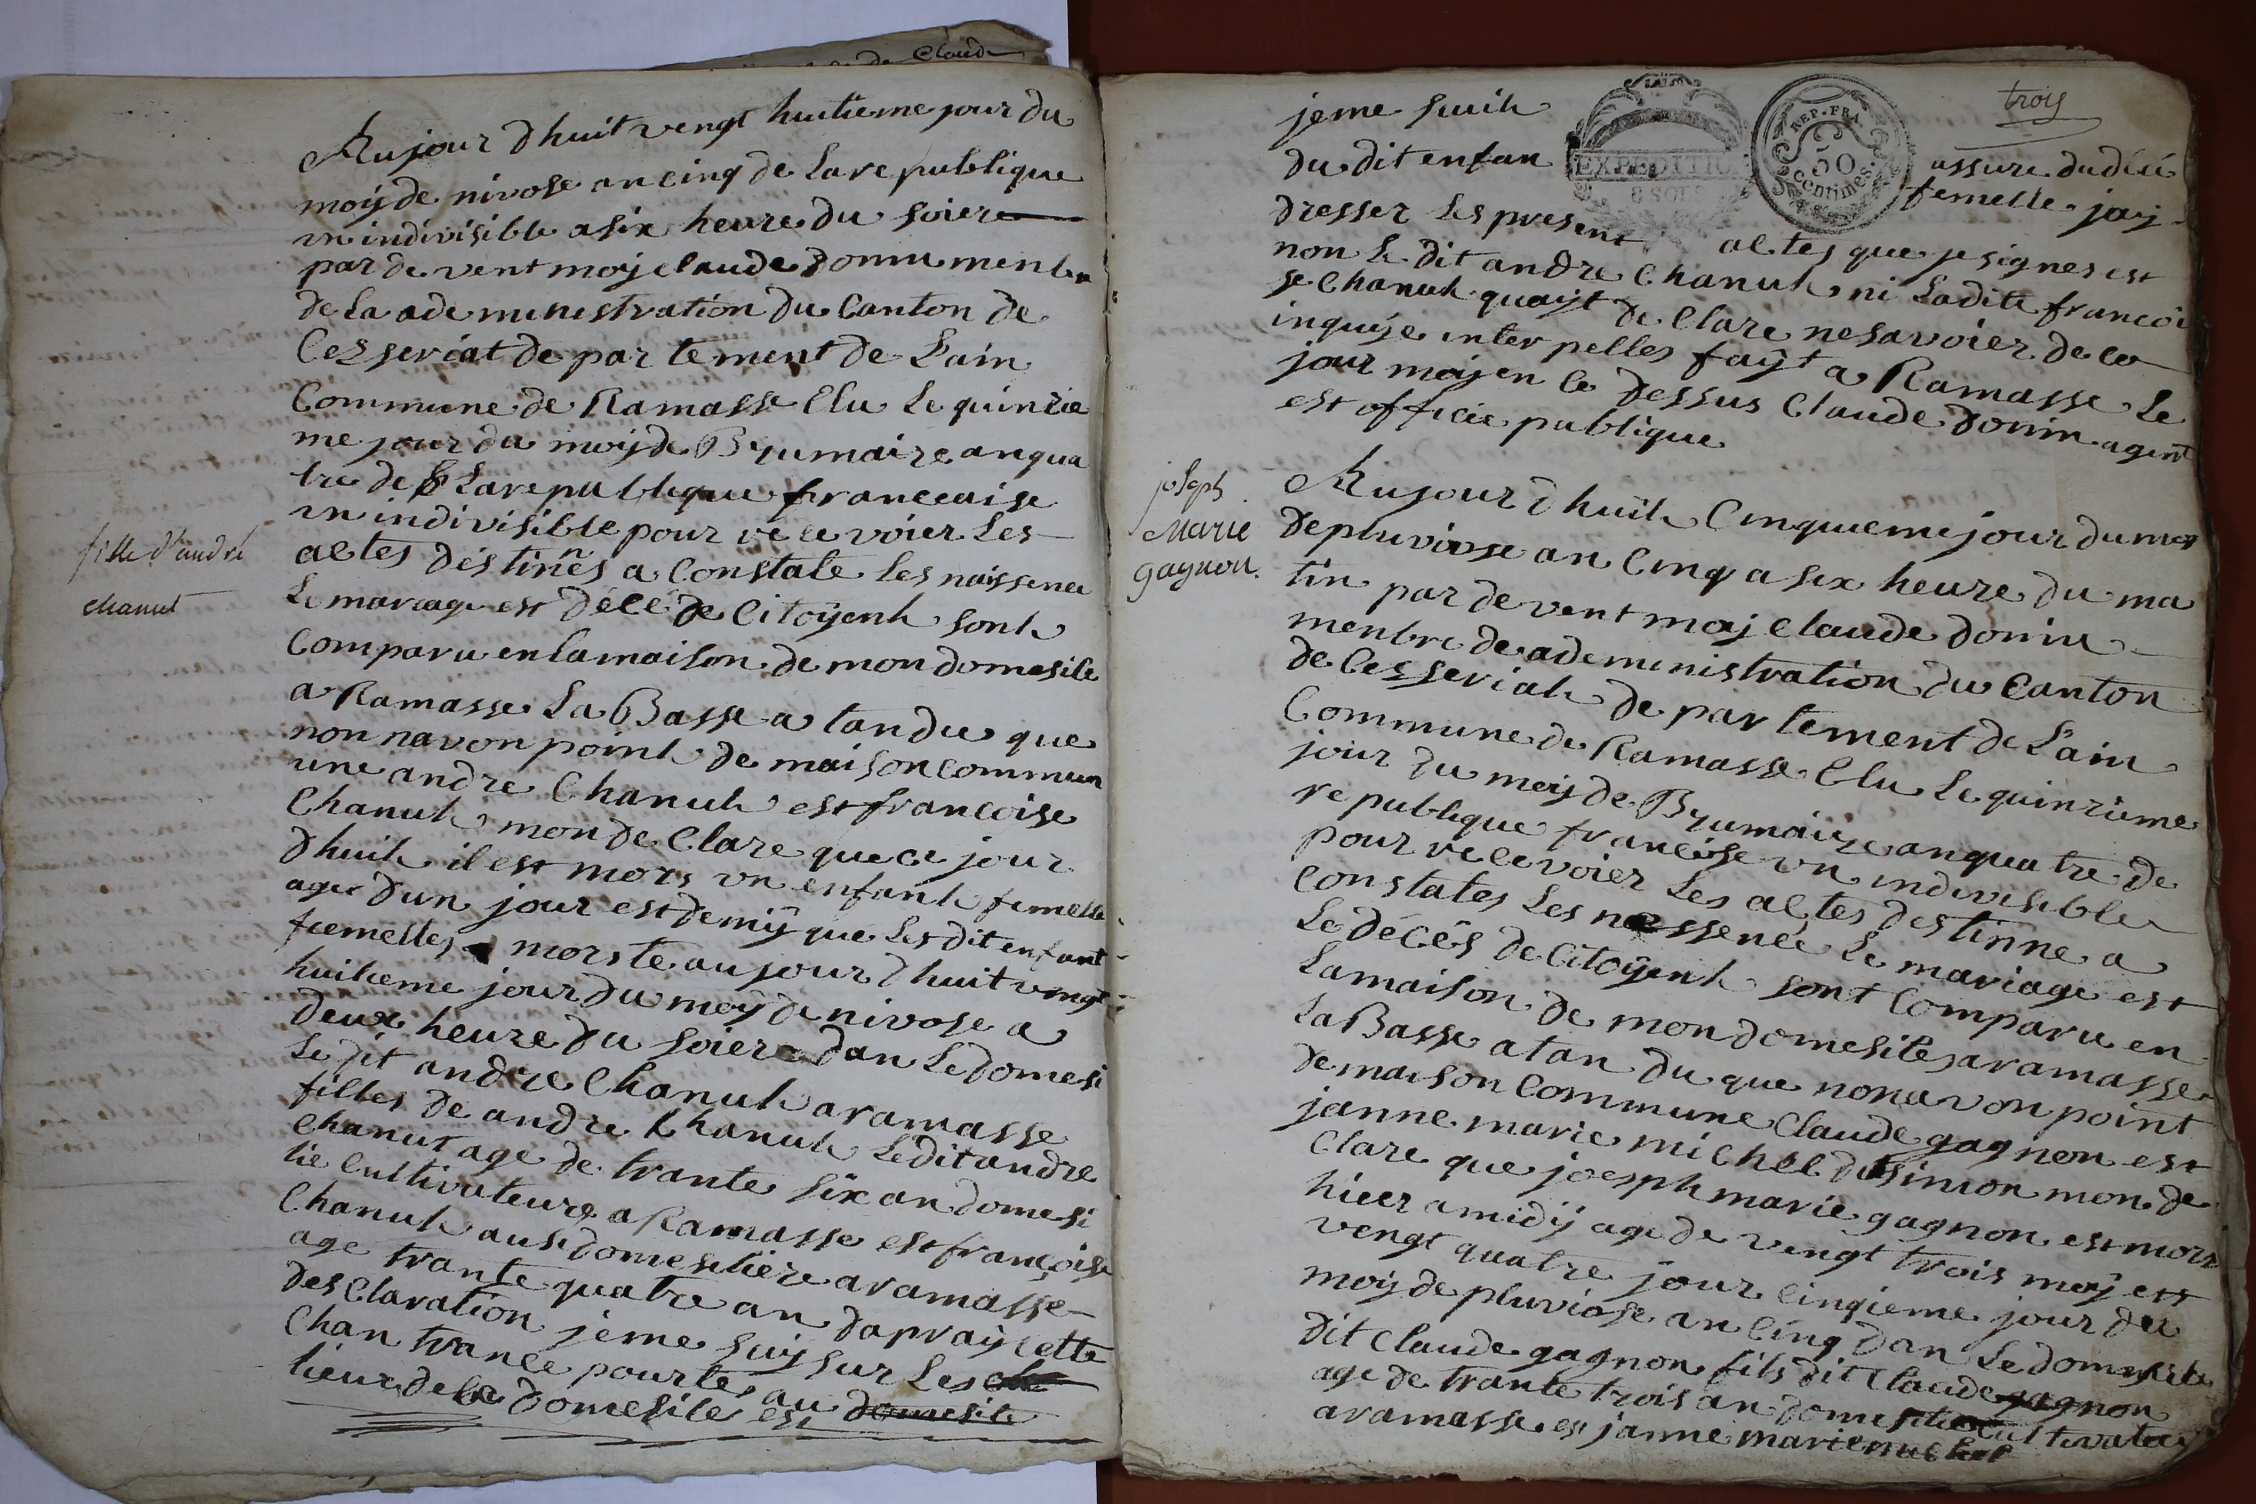 Claude
Aujour dhuit vengt huitieme jour du
moij de nivose an cinq de La re publique
un indivisible a six heure du soier
par de vent moij claude donin menbre
de La ade ministration du Canton de
Cezseriat de par te ment de L'ain
Commune de Ramasse Elu Le quinzie
me jour du moij de Brumaire an qua
tre de La republique francaise
un indivisible pour re ce voier Les
actes destinnes a Constate les naissence
Le mariage est décé de Citoÿent sont
Comparu en la maison de mon domesile
a Ramasse La Basse a tandu que
non navon point de maison commun
une andre Chanut est francoise
Chanut mon de Clare que ce jour
dhuit il est mors un enfant femelle
age d'un jour est demiÿ que Les dit enfant
femelles morste aujour dhuit vengt
huitieme jour du moij de nivose a
deux heure du soier dan Le domesi
Le dit andre Chanut a ramasse
filles de andre Chanut Ledit andre
Chanut age de trante six an domesi
lie Cultivateure a Ramasse est francoise
Chanut ausi domesiliere a ramasse
age trante quatre an dapraij Cette
des Claration jeme suij sur Les
Chan trance pourtes au domesile
lieux de la domesile est
fille d'andré
chanut
trois
EXPEDITION
8 SOLS
REP. FRA.
50
centimes.
jeme suit assure du décé
du dit enfan femelle jaij
dresser Les present actes que je signes est
non Le dit andre Chanut ni Ladite francoi
se Chanut quaijt de Clare ne savoier de ce
inquise inter pelles faÿt a Ramasse Le
jour moij en Ce dessus Claude donin agent
est officié publique
joseph
Marie
gagnon.
Aujour dhuit Cinquieme jour du moij
de pluviose an Cinq a six heure du ma
tin par de vent moij Claude donin
menbre de ade ministration du Canton
de Cesseriat de par tement de L'ain
Commune de Ramasse Elu Le quinzieme
jour du moij de Brumaire an quatre de
re publique francoise un indivisible
pour re ce voier Les actes destinne a
constates Les nessencé Le mariage est
Le décês de Citoÿent sont Comparu en
La maison de mon domesiles a ramasse
La Basse a tan du que non avon point
de maison Commune Claude gagnon est
janne marie michel dusimon mon de
Clare que joesph marie gagnon est mors
hieer a midÿ age de vengt trois moij est
vengt quatre jour cinqieme jour du
moij de pluviose an Cinq dan Le domesile
dit Claude gagnon fils dit Claude gagnon
age de trante trois an domesilie Cultivateu
a ramasse est janne marie michel